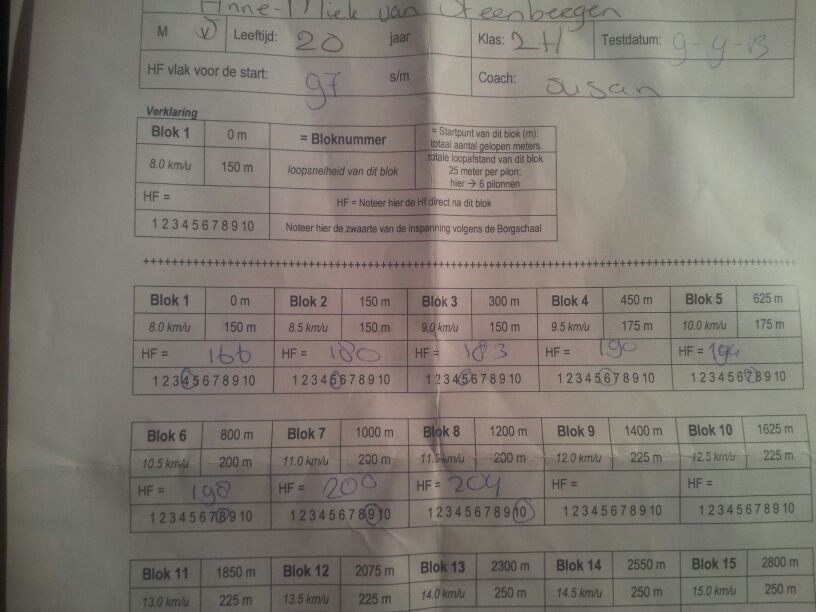 Anne-Miek van Steenbergen
M V Leeftijd: 20 jaar Klas: 2H Testdatum: 9-9-13
HF vlak voor de start: 97 s/m Coach: Susan
Verklaring
Blok 1 0 m = Bloknummer = Startpunt van dit blok (m): totaal aantal gelopen meters.
8.0 km/u 150 m loopsnelheid van dit blok totale loopafstand van dit blok 25 meter per pilon; hier → 6 pilonnen
HF = HF = Noteer hier de Hf direct na dit blok
1 2 3 4 5 6 7 8 9 10 Noteer hier de zwaarte van de inspanning volgens de Borgschaal
++++++++++++++++++++++++++++++++++++++++++++++++++++++++++++++++++++++++++++++++
Blok 1 0 m Blok 2 150 m Blok 3 300 m Blok 4 450 m Blok 5 625 m
8.0 km/u 150 m 8.5 km/u 150 m 9.0 km/u 150 m 9.5 km/u 175 m 10.0 km/u 175 m
HF = 166 HF = 180 HF = 183 HF = 190 HF = 194
1 2 3 4 5 6 7 8 9 10 1 2 3 4 5 6 7 8 9 10 1 2 3 4 5 6 7 8 9 10 1 2 3 4 5 6 7 8 9 10 1 2 3 4 5 6 7 8 9 10
Blok 6 800 m Blok 7 1000 m Blok 8 1200 m Blok 9 1400 m Blok 10 1625 m
10.5 km/u 200 m 11.0 km/u 200 m 11.5 km/u 200 m 12.0 km/u 225 m 12.5 km/u 225 m
HF = 198 HF = 200 HF = 204 HF = HF =
1 2 3 4 5 6 7 8 9 10 1 2 3 4 5 6 7 8 9 10 1 2 3 4 5 6 7 8 9 10 1 2 3 4 5 6 7 8 9 10 1 2 3 4 5 6 7 8 9 10
Blok 11 1850 m Blok 12 2075 m Blok 13 2300 m Blok 14 2550 m Blok 15 2800 m
13.0 km/u 225 m 13.5 km/u 225 m 14.0 km/u 250 m 14.5 km/u 250 m 15.0 km/u 250 m